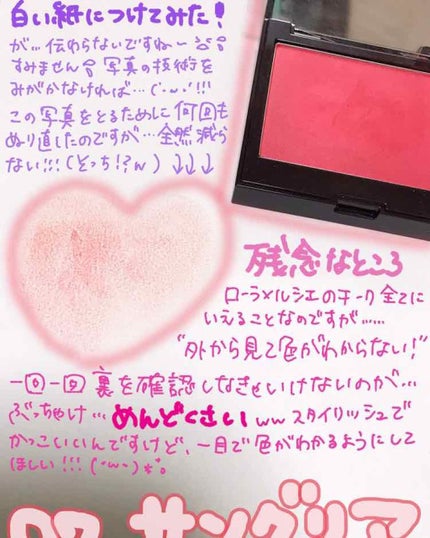 白い紙につけてみた!
が…伝わらないですねー
すみません 写真の技術を
みがかなければ…(´･ω･`!!!
この写真をとるために何回も
ぬり直したのですが…全然減ら
ない!!!(どっち!?w) ↓↓↓
残念なところ
ローラメルシエのチーク全てに
いえることなのですが……
"外から見て色がわからない!"
一回一回裏を確認しなきゃいけないのが…
ぶっちゃけ…めんどくさいwwスタイリッシュで
かっこいいんですけど、一目で色がわかるようにして
ほしい!!!(･ω･)*°。
07 サングリア